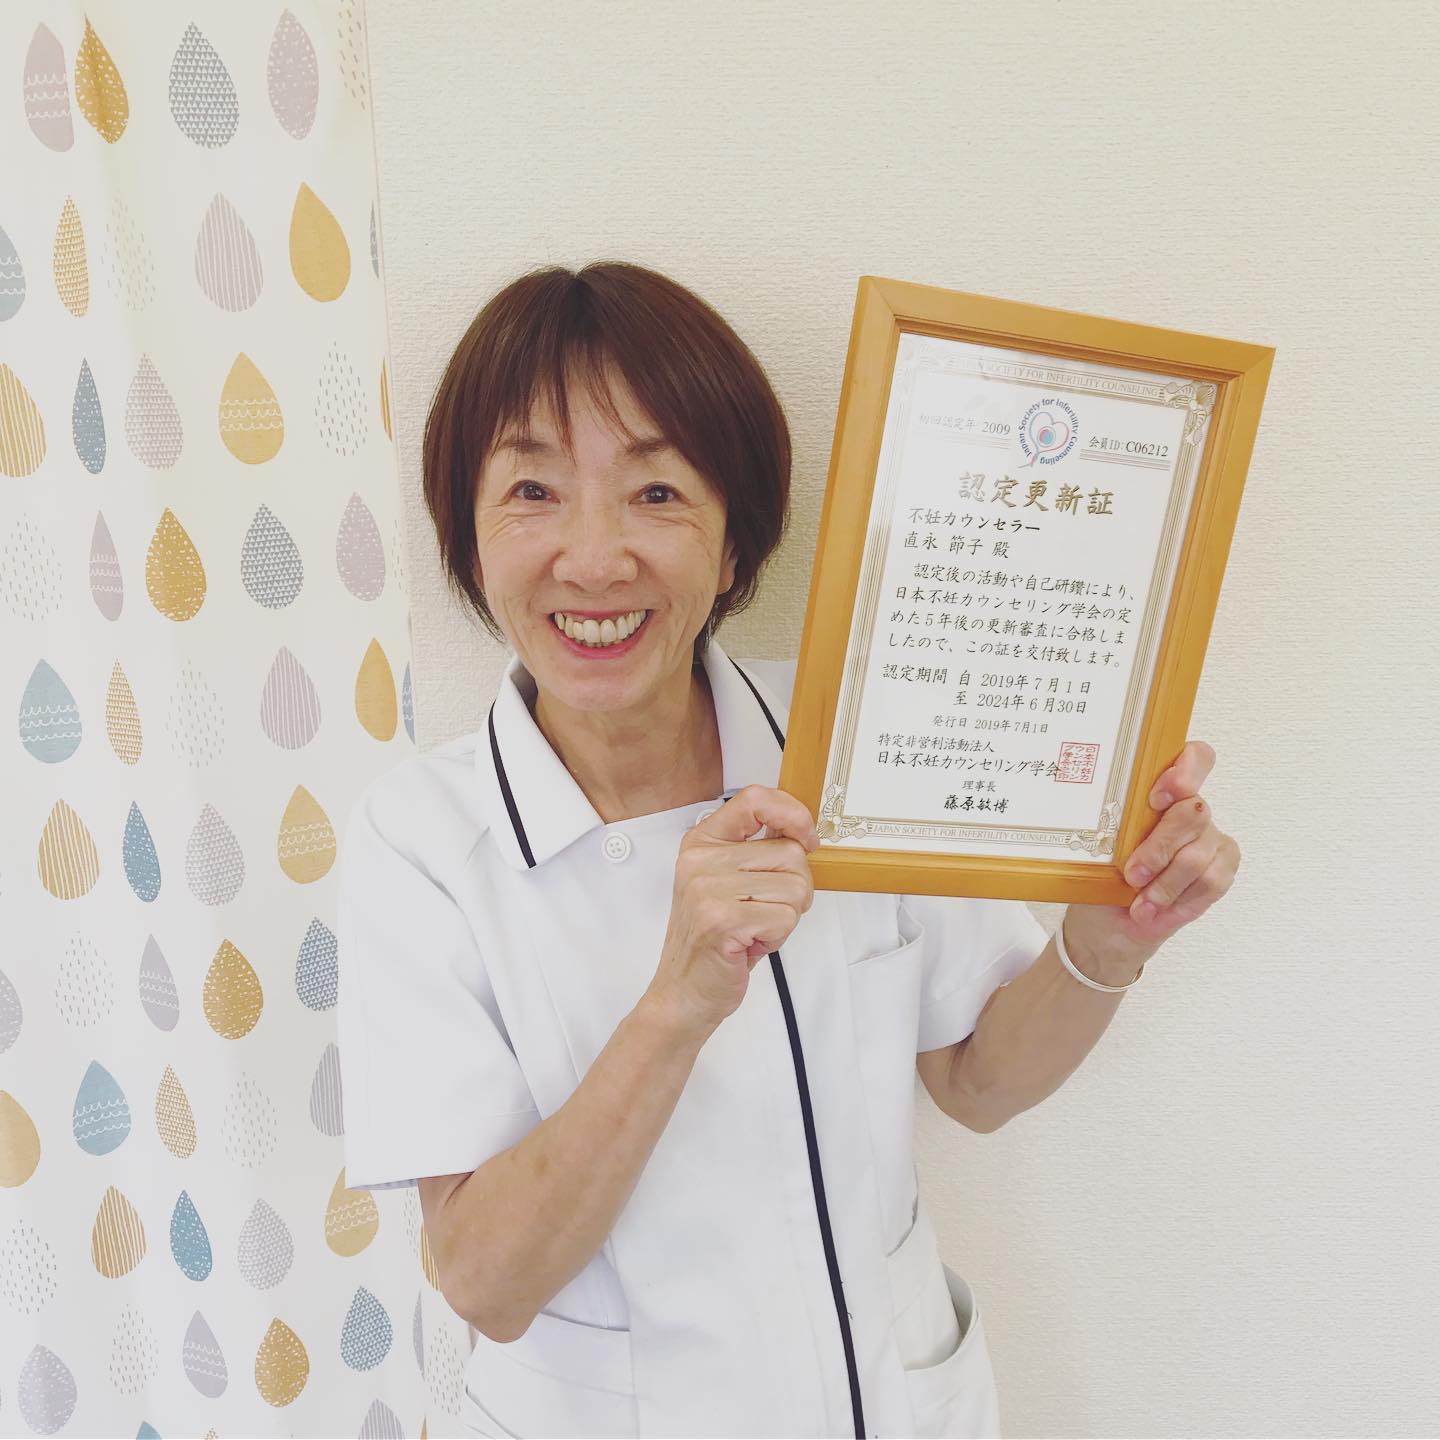 JAPAN SOCIETY FOR INFERTILITY COUNSELING
Japan Society for Infertility Counseling
初回認定年 2009
会員ID:C06212
認定更新証
不妊カウンセラー
直永 節子 殿
認定後の活動や自己研鑽により、
日本不妊カウンセリング学会の定
めた5年後の更新審査に合格しま
したので、この証を交付致します。
認定期間 自 2019年7月1日
至 2024年6月30日
発行日 2019年7月1日
特定非営利活動法人
日本不妊カウンセリング学会
理事長
藤原敏博
JAPAN SOCIETY FOR INFERTILITY COUNSELING